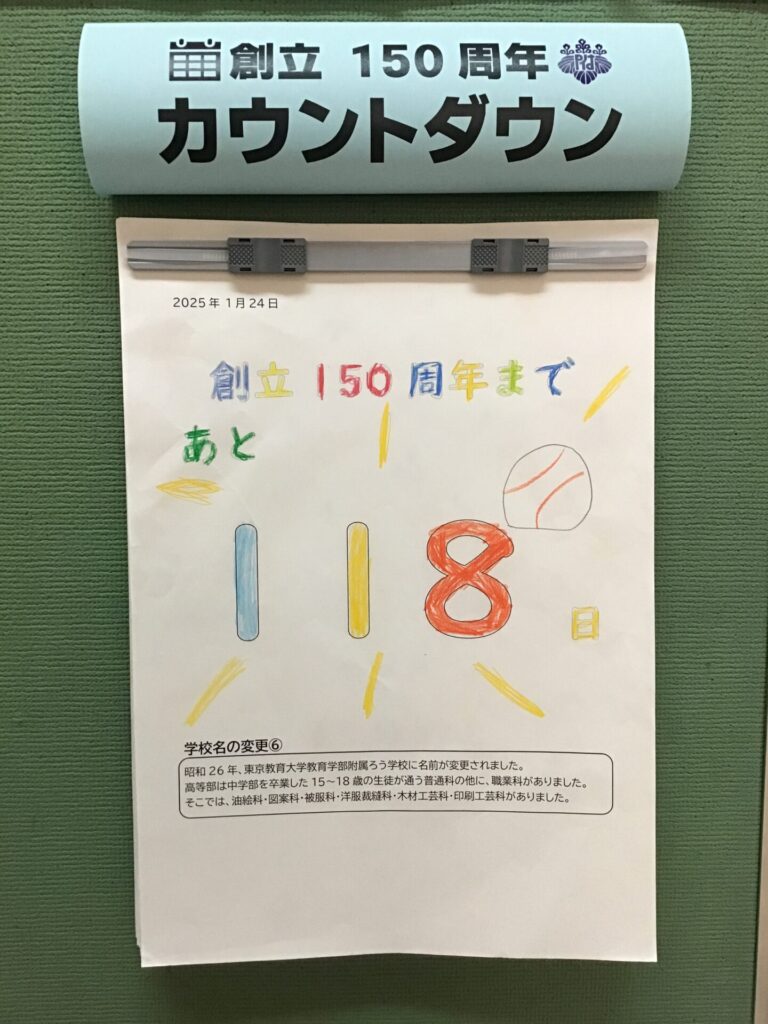 創立 150 周年
カウントダウン
2025年 1月24日
創立 150 周年まで
あと
118
日
学校名の変更⑥
昭和 26 年、東京教育大学教育学部附属ろう学校に名前が変更されました。
高等部は中学部を卒業した 15～18 歳の生徒が通う普通科の他に、職業科がありました。
そこでは、油絵科・図案科・被服科・洋服裁縫科・木材工芸科・印刷工芸科がありました。